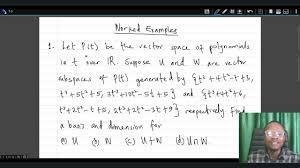 Worked Examples
1. Let P(t) be the vector space of polynomials
in t over IR. Suppose U and W are vector
subspaces of P(t) generated by {t³+4t²-t+6,
t³+5t²+5, 3t³+10t²-5t+5} and {t³+4t²+6,
t³+2t²-t+5, 2t³+2t²-3t+9} respectively find
a basis and dimension for
(a) U (b) W (c) U+W (d) U∩W